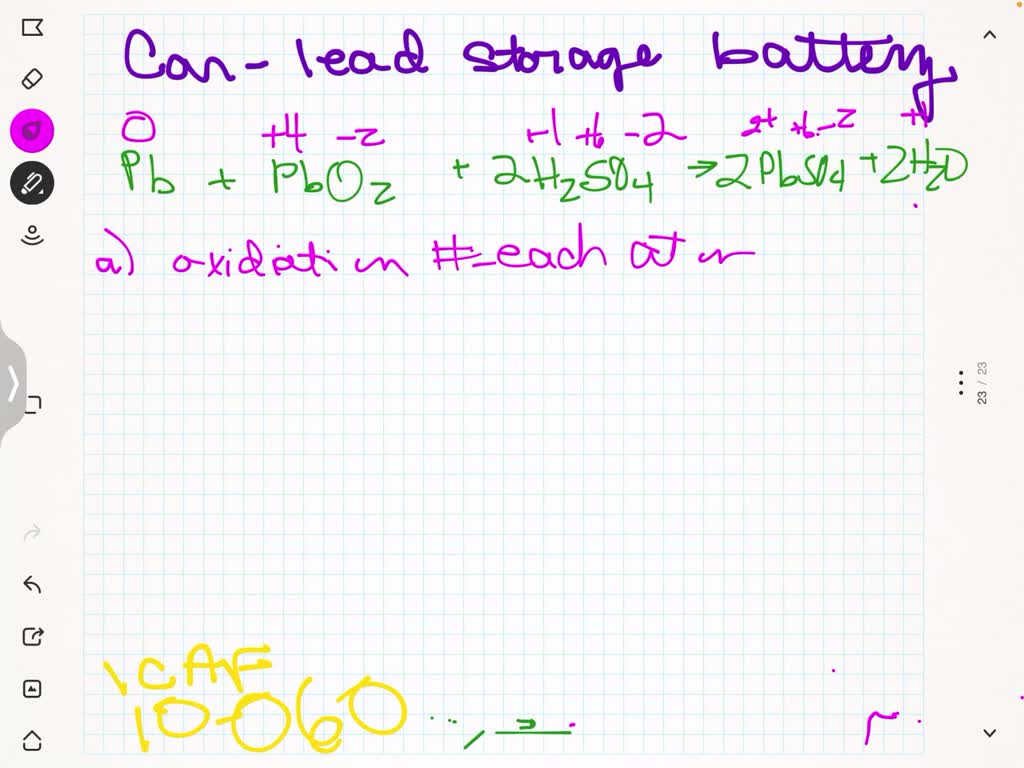 Car - lead storage battery
0 +4 -2 +1 +6 -2 2+ +6 -2 +1
Pb + PbO2 + 2H2SO4 → 2PbSO4 + 2H2O
a) oxidation # - each atom
23 / 23
1CAF
10-060